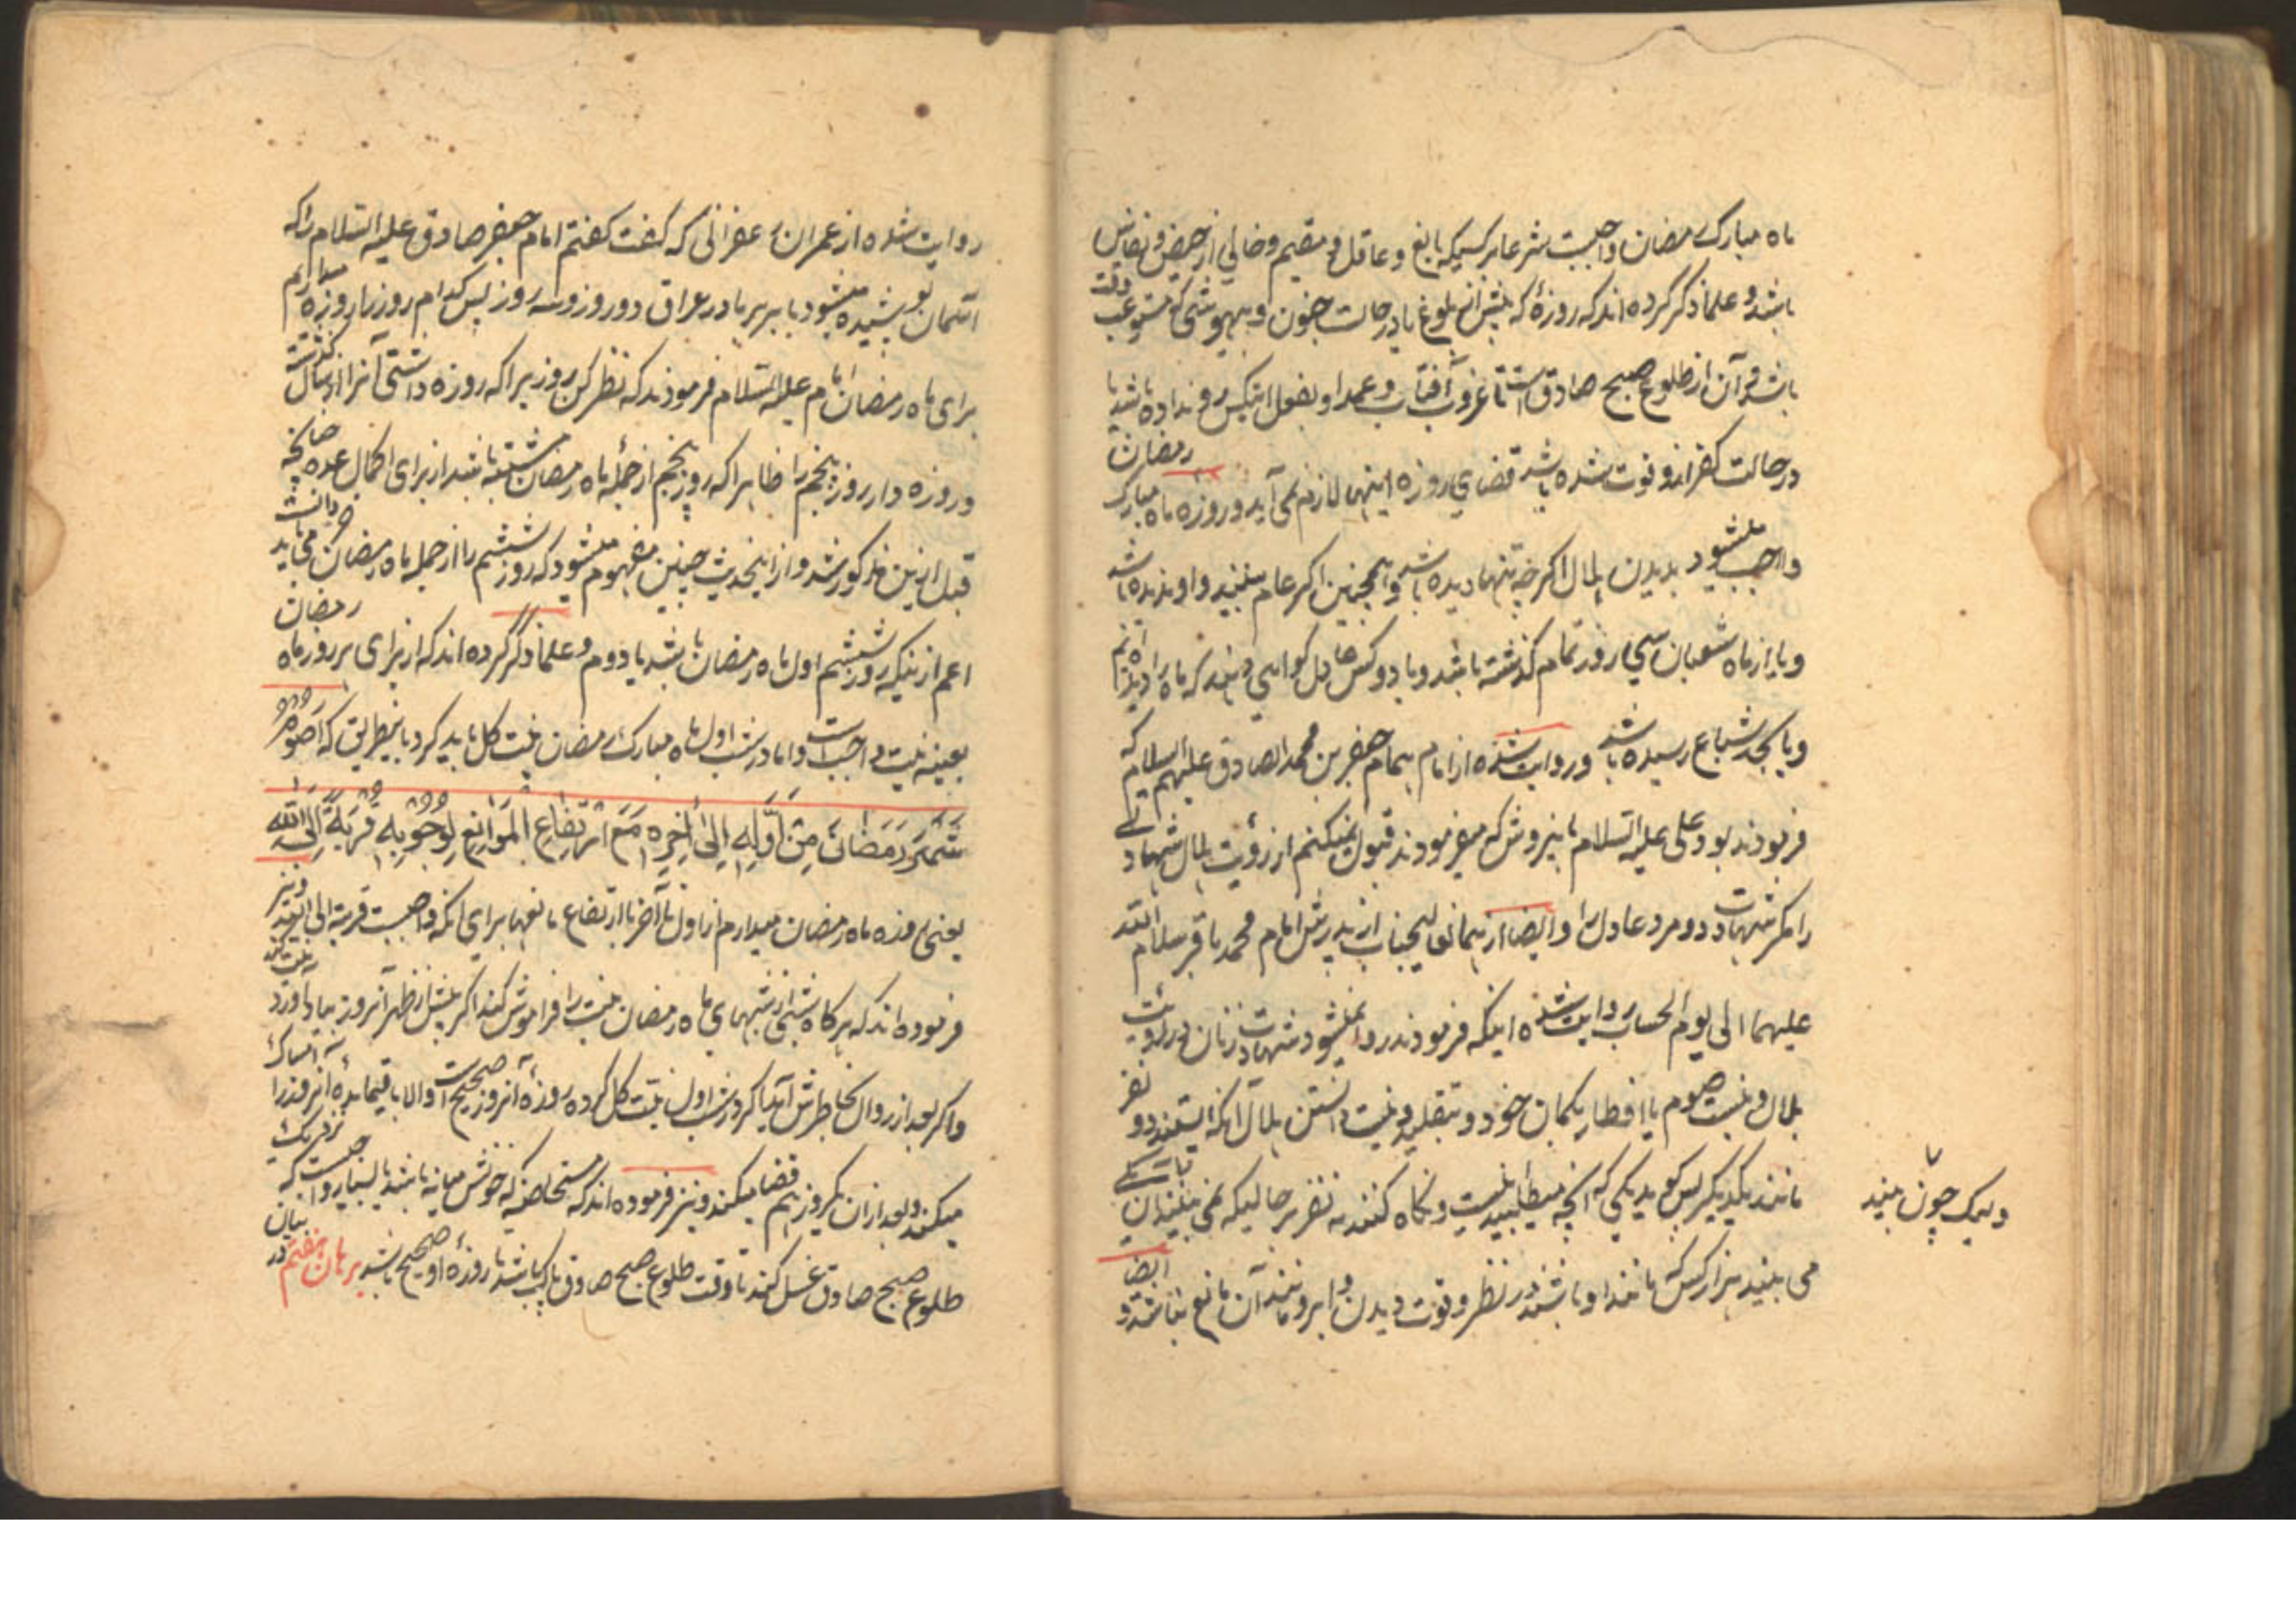 ماه مبارک رمضان واجبست شرعا بر کسیکه بالغ و عاقل و مقیم و خالی از حیض و نفاس
باشد و علما ذکر کرده اند که روزهٔ که پیش از بلوغ یا در حالت جنون و بیهوشی که مستوعب وقت
باشد و آن از طلوع صبح صادق است تا غروب آفتاب و عمدا و بفعل اینکس رو نداده باشد یا
در حالت کفر ازو فوت شده باشد قضای روزه اینها لازم نمی آید و روزه ماه مبارک رمضان
واجب میشود بدیدن هلال اگرچه تنها دیده باشد و همچنین اگر عام ببینند و او ندیده باشد
و یا از ماه شعبان سی روز تمام گذشته باشد و یا دو کس عادل گواهی دهند که ماه را دیده ایم
و یا بحد شیاع رسیده باشد و روایت شده از امام همام جعفر بن محمد الصادق علیهم السلام که
فرمودند بود علی علیه السلام باینروش که میفرمودند قبول نمیکنم از رؤیت هلال شهادتے
را مگر شهادت دو مرد عادل را و ایضا از همان عالیجناب از پدرش امام محمد باقر سلام الله
علیهما الی یوم الحساب روایت شده اینکه فرمودند روا نمیشود شهادت زنان در رویت
هلال و نیست صوم یا افطار بگمان خود و بتقلید و نیست دانستن هلال آنکه ایستند دو نفر
مانند یکدیگر پس گوید یکی که آنچه میطلبید اینست و نگاه کنند نه نفر بر حالیکه نمی بینند آن
ولیک چون بیند
می بیند هزار کس که مانند او باشند در نظر و قوت دیدن و ابر و مانند آن مانع نباشد و ایضا
روایت شده از عمران زعفرانی که گفت گفتم امام جعفر صادق علیه السلام را که
آسمان پوشیده میشود بابر بر ما در عراق دو روز و سه روز پس کدام روز را روزه بداریم
برای ماه رمضان امام علیه السلام فرمودند که نظر کن روزیرا که روزه داشتی آنرا از سال گذشته
و روزه دار روز پنجم را ظاهرا که روز پنجم از جمله ماه رمضان مشتبه باشد از برای اکمال عده چنانچه
قبل ازین مذکور شد و از اینحدیث چنین مفهوم میشود که روز ششم را از جمله ماه رمضان می باید دانست
اعم از اینکه روز ششم اول ماه رمضان باشد یا دوم و علما ذکر کرده اند که از برای هر روز ماه رمضان
بعینه نیت واجب است و اما در شب اول ماه مبارک رمضان نیت کل باید کرد باینطریق که اَصُومُ
شَهْرَ رَمَضَانَ مِنْ اَوَّلِهِ اِلیٰ اٰخِرِهِ مَعَ ارْتِفَاعِ الْمَوَانِعِ لِوُجُوبِهِ قُرْبَةً اِلَی اللّٰهِ
یعنی روزه ماه رمضان میدارم از اول تا آخر با ارتفاع مانعها برای آنکه واجبست قربة الی الله و نیز
فرموده اند که هر گاه شبی از شبهای ماه رمضان نیت را فراموش کند اگر پیش از ظهر آنروز بیاد آورد نیت کند
و اگر بعد از زوال بخاطرش آید اگر در شب اول نیت کل کرده روزهٔ آنروز صحیح است و الا باقیماندهٔ آنروز را امساک
میکند و بعد از آن یکروز هم قضا میکند و نیز فرموده اند که مستحاضه که خونش میانه باشد یا بسیار واجبست که نزدیک
طلوع صبح صادق غسل کند تا وقت طلوع صبح صادق پاک باشد تا روزهٔ او صحیح باشد برهان هفتم در بیان